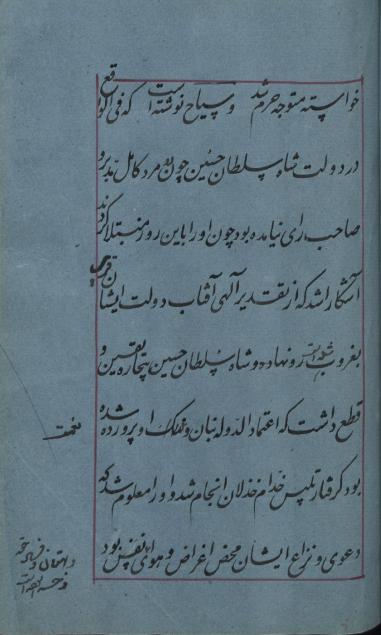 خواسته متوجه حرم شد و سیاح نوشته است که فی الواقع
در دولت شاه سلطان حسین چون او مرد کامل مدبر و
صاحب رای نیامده بود چون او را باین روز مبتلا کردند
آشکارا شد که از تقدیر آلهی آفتاب دولت ایشان
بغروب رو نهاده و شاه سلطان حسین بیچاره یقین و
قطع داشت که اعتماد الدوله بنان و نمک او پرورده شده
بود گرفتار تلبیس خدام خذلان انجام شد و او را معلوم شد که
دعوی و نزاع ایشان محض اغراض و هوای نفس بود
نعمت